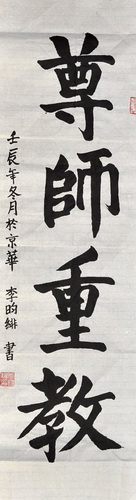 尊師重教
壬辰年冬月於京華 李昀緋 書